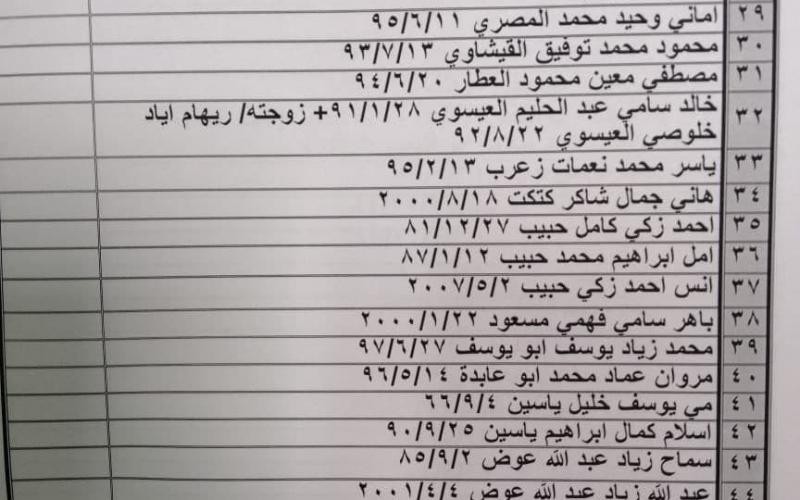 ٢٩ اماني وحيد محمد المصري ٩٥/٦/١١
٣٠ محمود محمد توفيق القيشاوي ٩٣/٧/١٣
٣١ مصطفي معين محمود العطار ٩٤/٦/٢٠
٣٢ خالد سامي عبد الحليم العيسوي ٩١/١/٢٨+ زوجته/ ريهام اياد
خلوصي العيسوي ٩٢/٨/٢٢
٣٣ ياسر محمد نعمات زعرب ٩٥/٢/١٣
٣٤ هاني جمال شاكر كتكت ٢٠٠٠/٨/١٨
٣٥ احمد زكي كامل حبيب ٨١/١٢/٢٧
٣٦ امل ابراهيم محمد حبيب ٨٧/١/١٢
٣٧ انس احمد زكي حبيب ٢٠٠٧/٥/٢
٣٨ باهر سامي فهمي مسعود ٢٠٠٠/١/٢٢
٣٩ محمد زياد يوسف ابو يوسف ٩٧/٦/٢٧
٤٠ مروان عماد محمد ابو عابدة ٩٦/٥/١٤
٤١ مي يوسف خليل ياسين ٦٦/٩/٤
٤٢ اسلام كمال ابراهيم ياسين ٩٠/٩/٢٥
٤٣ سماح زياد عبد الله عوض ٨٥/٩/٢
٤٤ عبد الله زياد عبد الله عوض ٢٠٠١/٤/٤